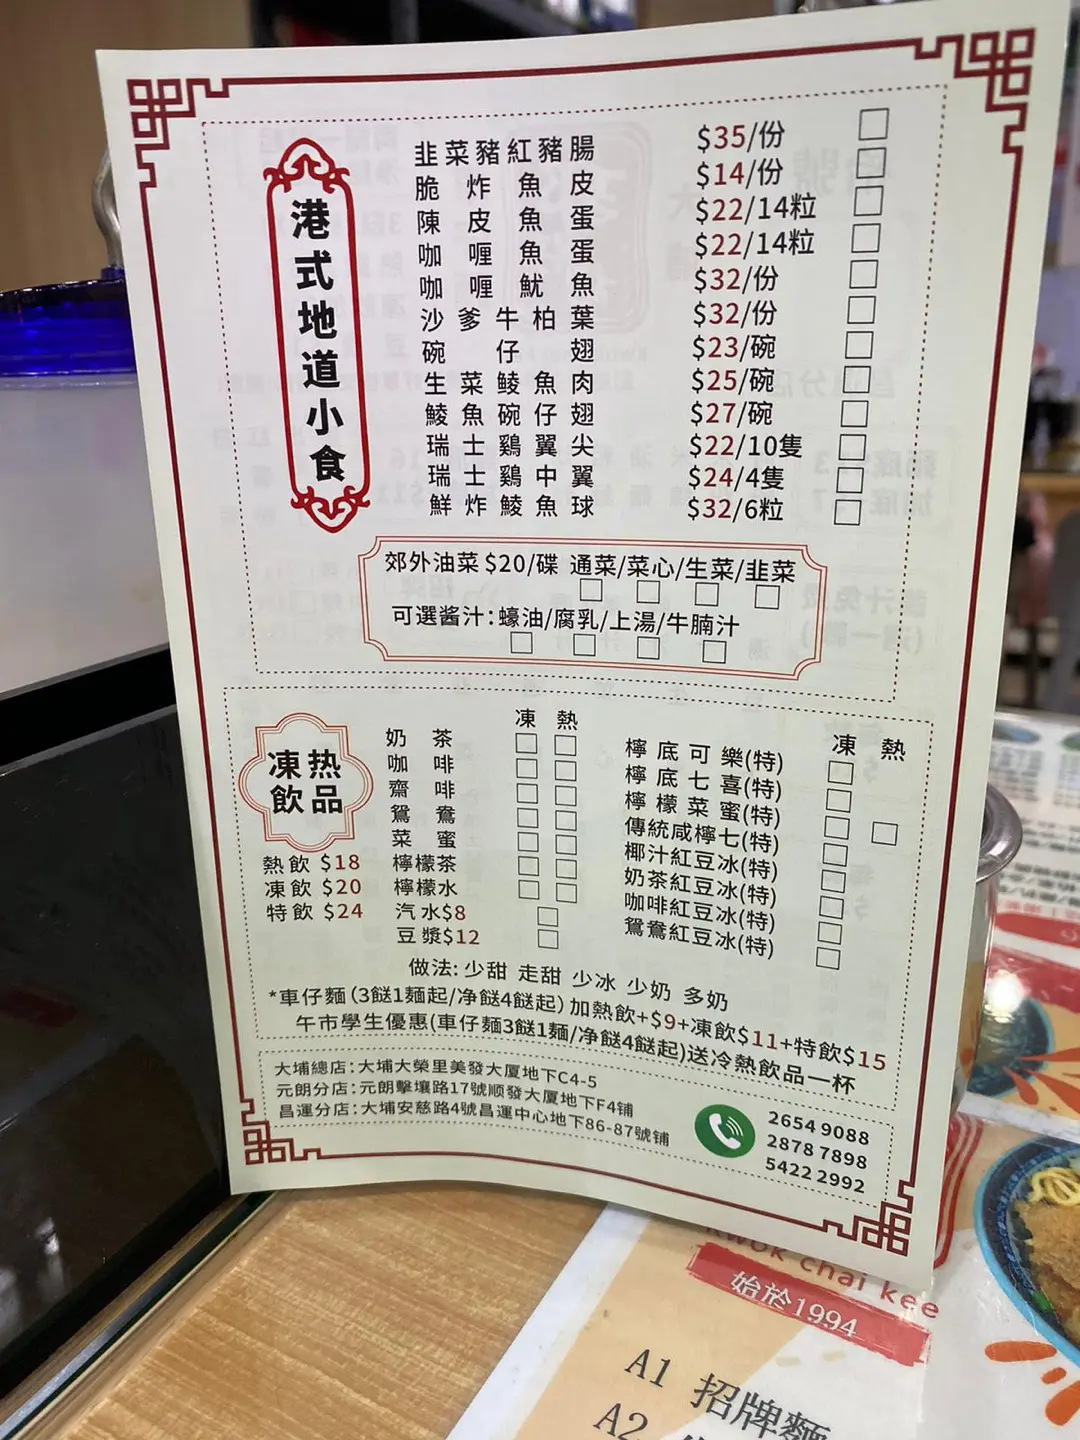 港式地道小食
韭菜豬紅豬腸 $35/份
脆炸魚皮 $14/份
陳皮魚蛋 $22/14粒
咖喱魚蛋 $22/14粒
咖喱魷魚 $32/份
沙爹牛柏葉 $32/份
碗仔翅 $23/碗
生菜鯪魚肉 $25/碗
鯪魚碗仔翅 $27/碗
瑞士鷄翼尖 $22/10隻
瑞士鷄中翼 $24/4隻
鮮炸鯪魚球 $32/6粒
郊外油菜 $20/碟 通菜/菜心/生菜/韭菜
可選醬汁:蠔油/腐乳/上湯/牛腩汁
凍热
飲品
熱飲 $18
凍飲 $20
特飲 $24
凍 熱
奶茶
咖啡
齋啡
鴛鴦
菜蜜
檸檬茶
檸檬水
汽水$8
豆漿$12
凍 熱
檸底可樂(特)
檸底七喜(特)
檸檬菜蜜(特)
傳統咸檸七(特)
椰汁紅豆冰(特)
奶茶紅豆冰(特)
咖啡紅豆冰(特)
鴛鴦紅豆冰(特)
做法:少甜 走甜 少冰 少奶 多奶
*車仔麵(3餸1麵起/净餸4餸起)加熱飲+$9+凍飲$11+特飲$15
午市學生優惠(車仔麵3餸1麵/净餸4餸起)送冷熱飲品一杯
大埔總店:大埔大榮里美發大厦地下C4-5
元朗分店:元朗擊壤路17號顺發大厦地下F4铺
昌運分店:大埔安慈路4號昌運中心地下86-87號铺
2654 9088
2878 7898
5422 2992
kwok chai kee
始於1994
A1 招牌麵
A2